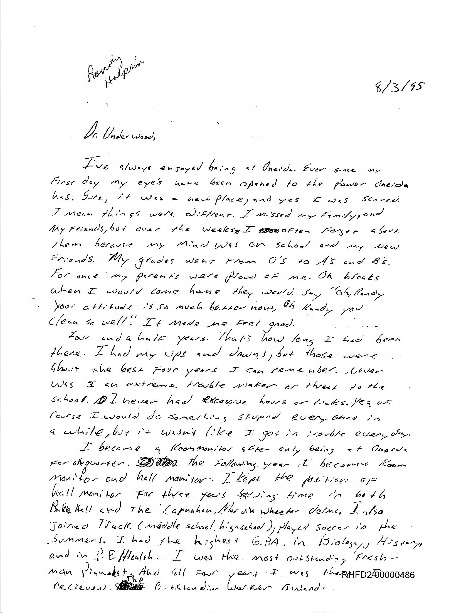 Randy
Halprin
8/3/95
Dr. Underwood,
I've always enjoyed being at Oneida. Ever since my
First day my eye's have been opened to the power Oneida
has. Sure, it was a new place, and yes I was scared.
I mean things were different. I missed my Family, and
My Friends, but over the weeks I often Forgot about
them because my mind was on school and my new
Friends. My grades went From D's to A's and B's.
For once my parents were proud of me. On breaks
when I would come home they would say "Oh, Randy
your attitude is so much better now, Oh Randy you
clean so well!" It made me Feel good.
Four and a half years. That's how long I had been
there. I had my ups and downs, but those were
the best Four years I can remember. Never
was I an extreme trouble maker or threat to the
school. I never had excessive hours or Yea, of
course I would do something stupid every once in
a while, but it wasn't like I got in trouble every day.
I became a Roommonitor after only being at Oneida
For a quarter. The Following year I became Room
monitor and hall monitor. I kept the position of
hall monitor For three years serving time in both
and The Marvin Wheeler dorms. I also
joined Track (middle school, highschool), Played soccer in the
Summers. I had the highest G.P.A. in Biology, History,
and in P.E/Health. I was the most outstanding Fresh-
man And all Four years I was the
RHFD2A00000486
recieved The Outstanding Worker Award.